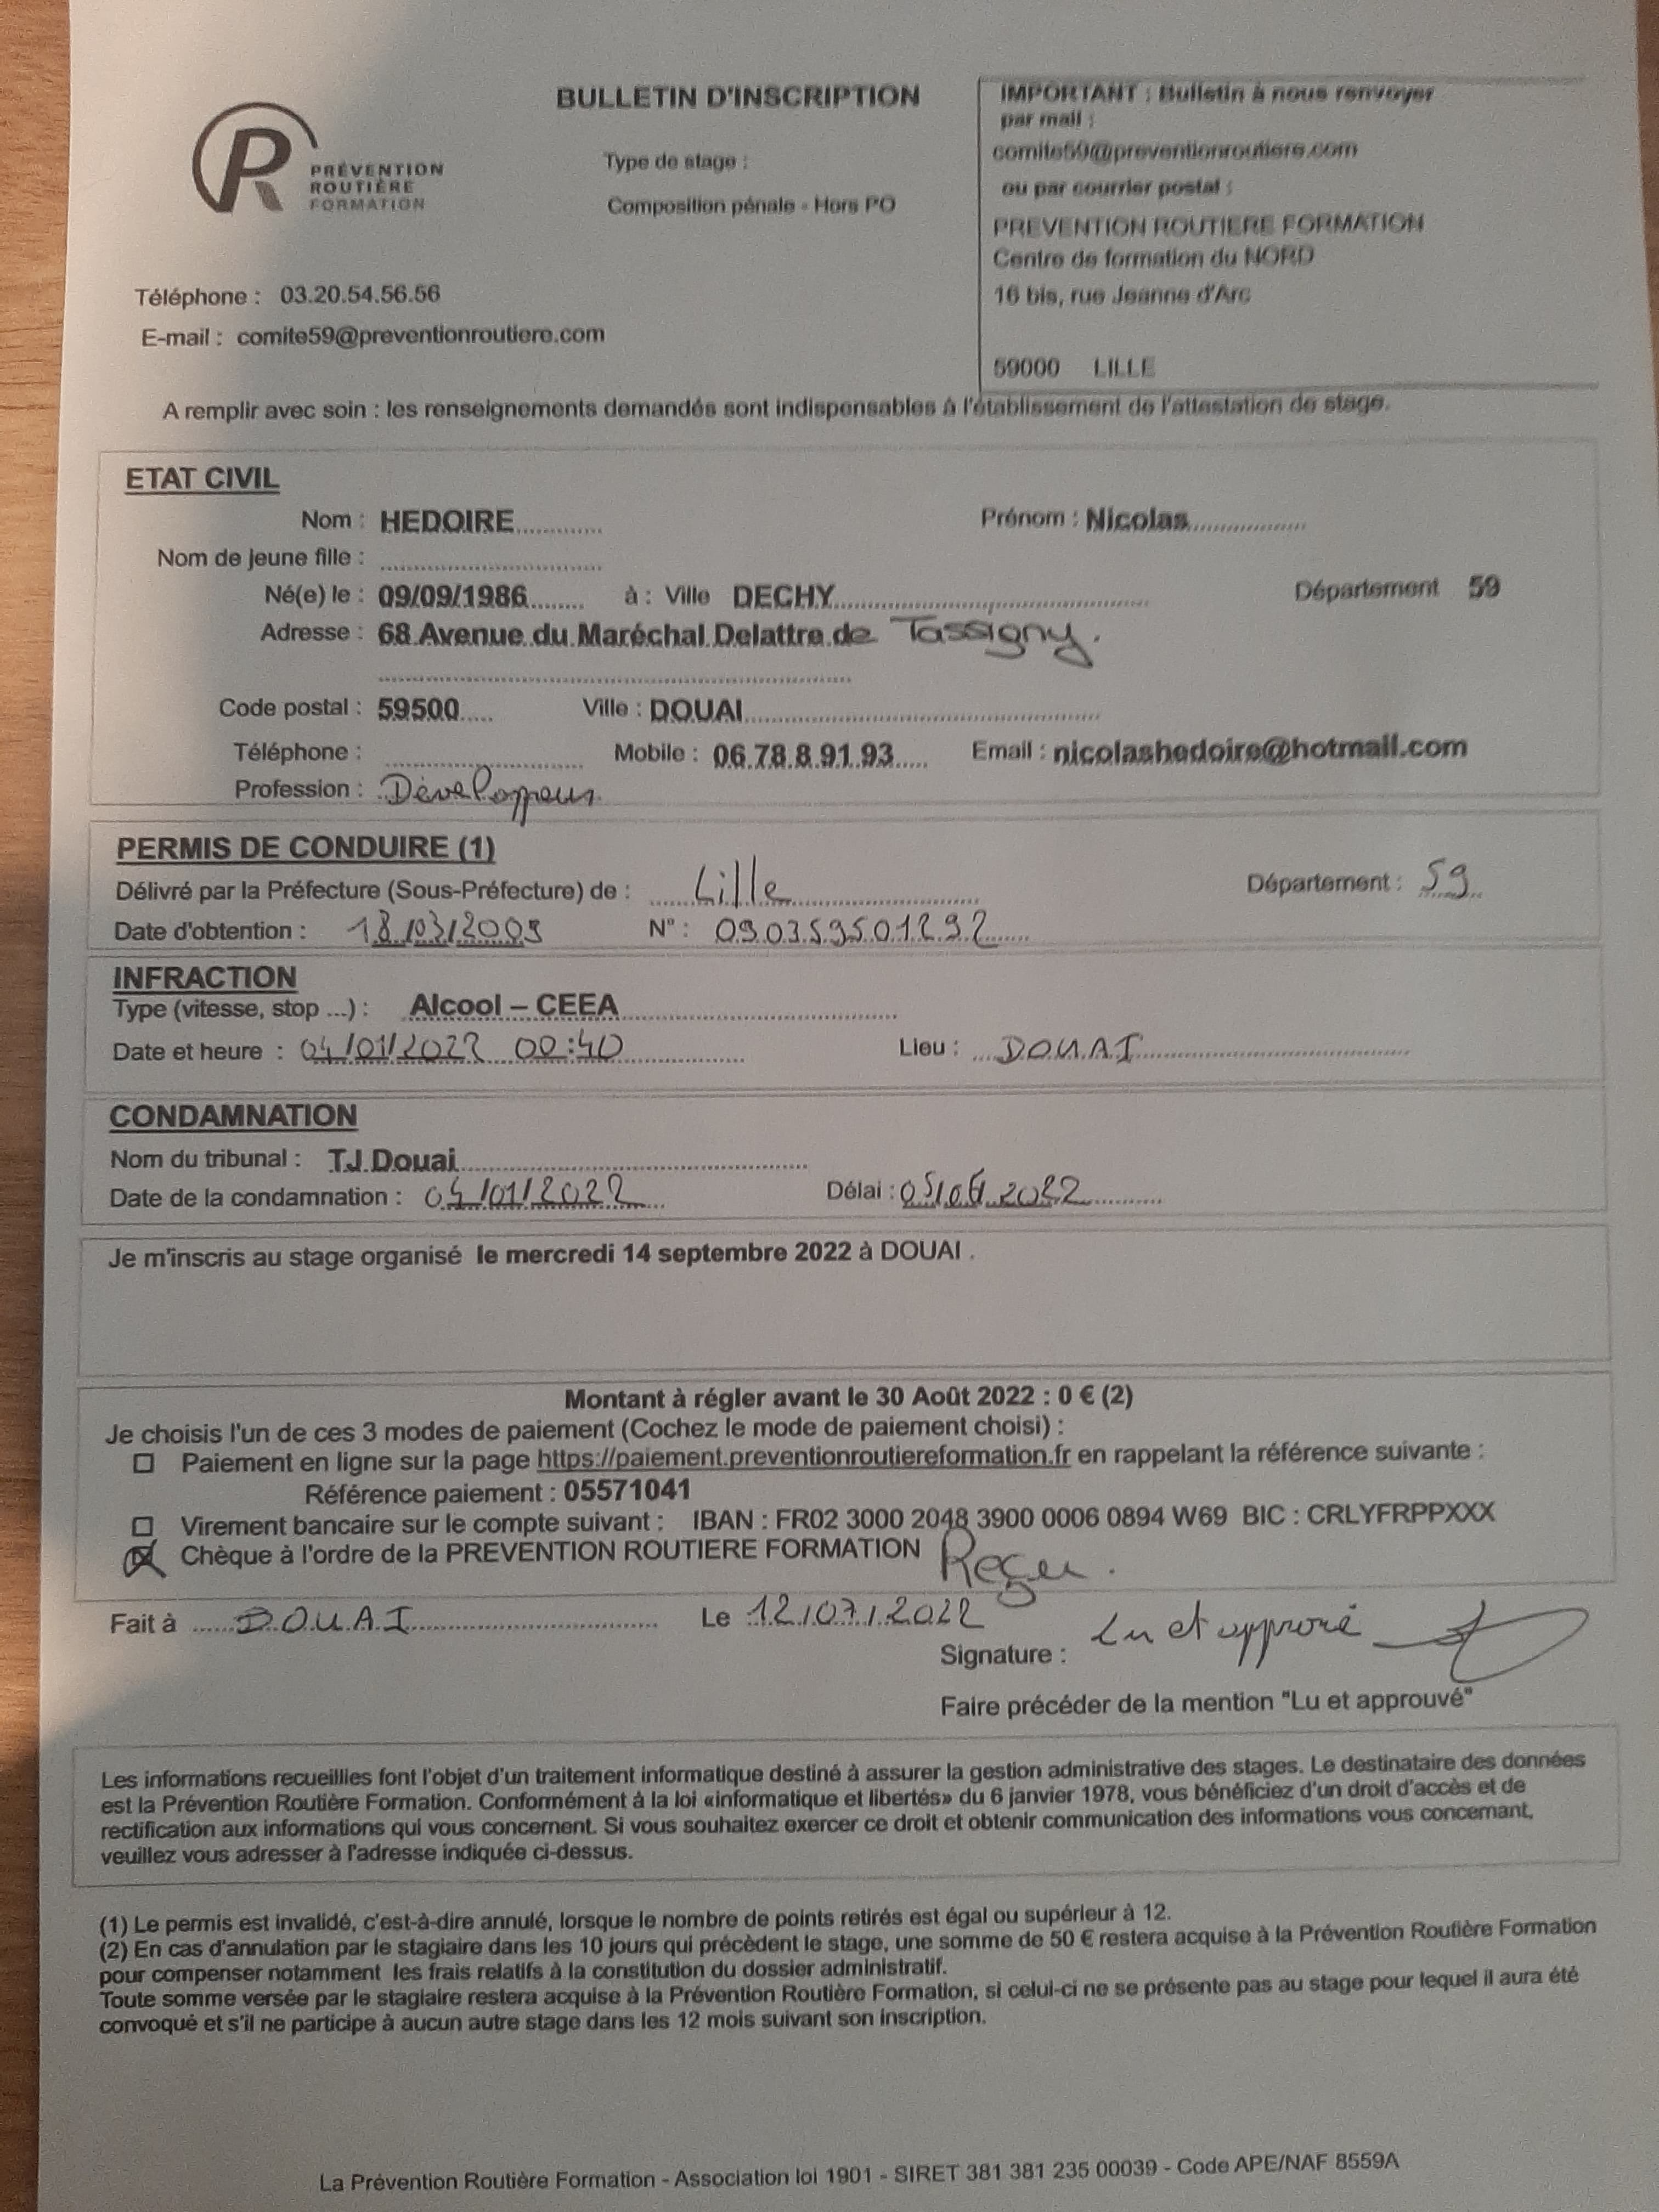 BULLETIN D'INSCRIPTION
Type de stage :
Composition pénale - Hors PO
PRÉVENTION
ROUTIÈRE
FORMATION
IMPORTANT : Bulletin à nous renvoyer
par mail :
comite59@preventionroutiere.com
ou par courrier postal :
PREVENTION ROUTIERE FORMATION
Centre de formation du NORD
16 bis, rue Jeanne d'Arc
59000 LILLE
Téléphone : 03.20.54.56.56
E-mail : comite59@preventionroutiere.com
A remplir avec soin : les renseignements demandés sont indispensables à l'établissement de l'attestation de stage.
ETAT CIVIL
Nom : HEDOIRE Prénom : Nicolas
Nom de jeune fille :
Né(e) le : 09/09/1986 à : Ville DECHY Département 59
Adresse : 68 Avenue du Maréchal Delattre de Tassigny.
Code postal : 59500 Ville : DOUAI
Téléphone : Mobile : 06.78.8.91.93 Email : nicolashedoire@hotmail.com
Profession : Développeur
PERMIS DE CONDUIRE (1)
Délivré par la Préfecture (Sous-Préfecture) de : Lille Département : 59
Date d'obtention : 18/03/2009 N° : 090359501292
INFRACTION
Type (vitesse, stop ...) : Alcool – CEEA
Date et heure : 04/01/2022 00:40 Lieu : DOUAI
CONDAMNATION
Nom du tribunal : TJ Douai
Date de la condamnation : 04/01/2022 Délai : 2022
Je m'inscris au stage organisé le mercredi 14 septembre 2022 à DOUAI .
Montant à régler avant le 30 Août 2022 : 0 € (2)
Je choisis l'un de ces 3 modes de paiement (Cochez le mode de paiement choisi) :
Paiement en ligne sur la page https://paiement.preventionroutiereformation.fr en rappelant la référence suivante :
Référence paiement : 05571041
Virement bancaire sur le compte suivant : IBAN : FR02 3000 2048 3900 0006 0894 W69 BIC : CRLYFRPPXXX
Chèque à l'ordre de la PREVENTION ROUTIERE FORMATION Reçu.
Fait à DOUAI Le 12/07/2022
Signature : Lu et approuvé
Faire précéder de la mention "Lu et approuvé"
Les informations recueillies font l'objet d'un traitement informatique destiné à assurer la gestion administrative des stages. Le destinataire des données
est la Prévention Routière Formation. Conformément à la loi «informatique et libertés» du 6 janvier 1978, vous bénéficiez d'un droit d'accès et de
rectification aux informations qui vous concernent. Si vous souhaitez exercer ce droit et obtenir communication des informations vous concernant,
veuillez vous adresser à l'adresse indiquée ci-dessus.
(1) Le permis est invalidé, c'est-à-dire annulé, lorsque le nombre de points retirés est égal ou supérieur à 12.
(2) En cas d'annulation par le stagiaire dans les 10 jours qui précèdent le stage, une somme de 50 € restera acquise à la Prévention Routière Formation
pour compenser notamment les frais relatifs à la constitution du dossier administratif.
Toute somme versée par le stagiaire restera acquise à la Prévention Routière Formation, si celui-ci ne se présente pas au stage pour lequel il aura été
convoqué et s'il ne participe à aucun autre stage dans les 12 mois suivant son inscription.
La Prévention Routière Formation - Association loi 1901 - SIRET 381 381 235 00039 - Code APE/NAF 8559A